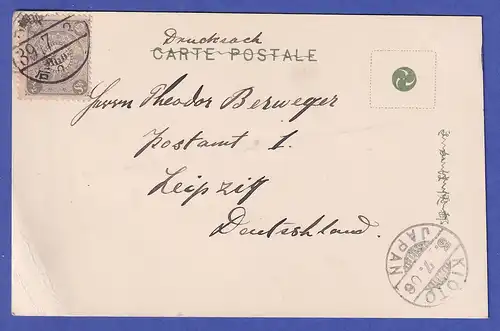 Drucksach
CARTE POSTALE
39.7
Herrn Theodor Berweger
Postamt 1.
Leipzig
Deutschland.
KIOTO
JAPAN
.7.06